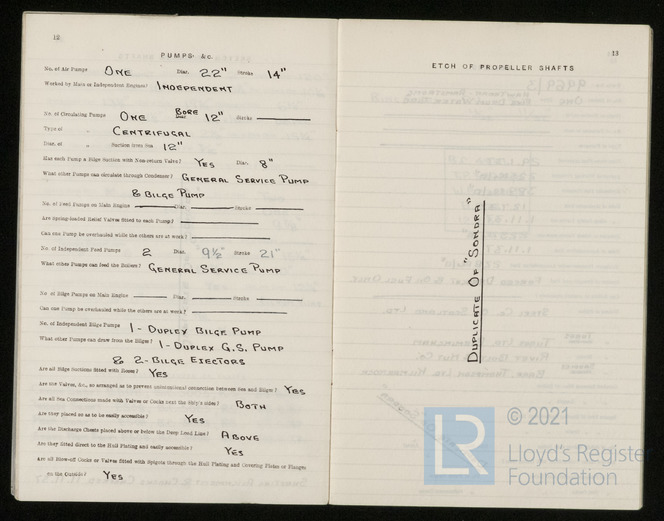 12
PUMPS &c.
No. of Air Pumps ONE Diar. 22" Stroke 14"
Worked by Main or Independent Engines? INDEPENDENT
No. of Circulating Pumps ONE BORE 12" Stroke
Type of " CENTRIFUGAL
Diar. of " Suction from Sea 12"
Has each Pump a Bilge Suction with Non-return Valve? YES Diar. 8"
What other Pumps can circulate through Condenser? GENERAL SERVICE PUMP
& BILGE PUMP
No. of Feed Pumps on Main Engine Diar. Stroke
Are Spring-loaded Relief Valves fitted to each Pump?
Can one Pump be overhauled while the others are at work?
No. of Independent Feed Pumps 2 Diar. 9½" Stroke 21"
What other Pumps can feed the Boilers? GENERAL SERVICE PUMP
No. of Bilge Pumps on Main Engine Diar. Stroke
Can one Pump be overhauled while the others are at work?
No. of Independent Bilge Pumps 1 - DUPLEX BILGE PUMP
What other Pumps can draw from the Bilges? 1 - DUPLEX G.S. PUMP
& 2 - BILGE EJECTORS
Are all Bilge Suctions fitted with Roses? YES
Are the Valves, &c., so arranged as to prevent unintentional connection between Sea and Bilges? YES
Are all Sea Connections made with Valves or Cocks next the Ship's sides? BOTH
Are they placed so as to be easily accessible? YES
Are the Discharge Chests placed above or below the Deep Load Line? ABOVE
Are they fitted direct to the Hull Plating and easily accessible? YES
Are all Blow-off Cocks or Valves fitted with Spigots through the Hull Plating and Covering Plates or Flanges
on the Outside? YES
13
ETCH OF PROPELLER SHAFTS
DUPLICATE OF "SONDRA"
LR
© 2021
Lloyd's Register
Foundation